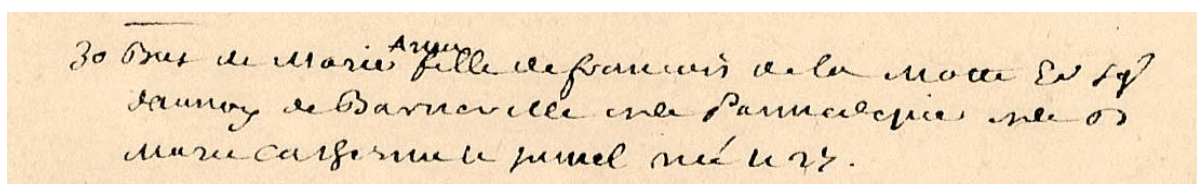 30 Bat de Marie Anne fille de francois de la Motte Ec sgr
daunoy de Barneville et de Pennedepie et de
Marie Catherine le jumel née le 27.